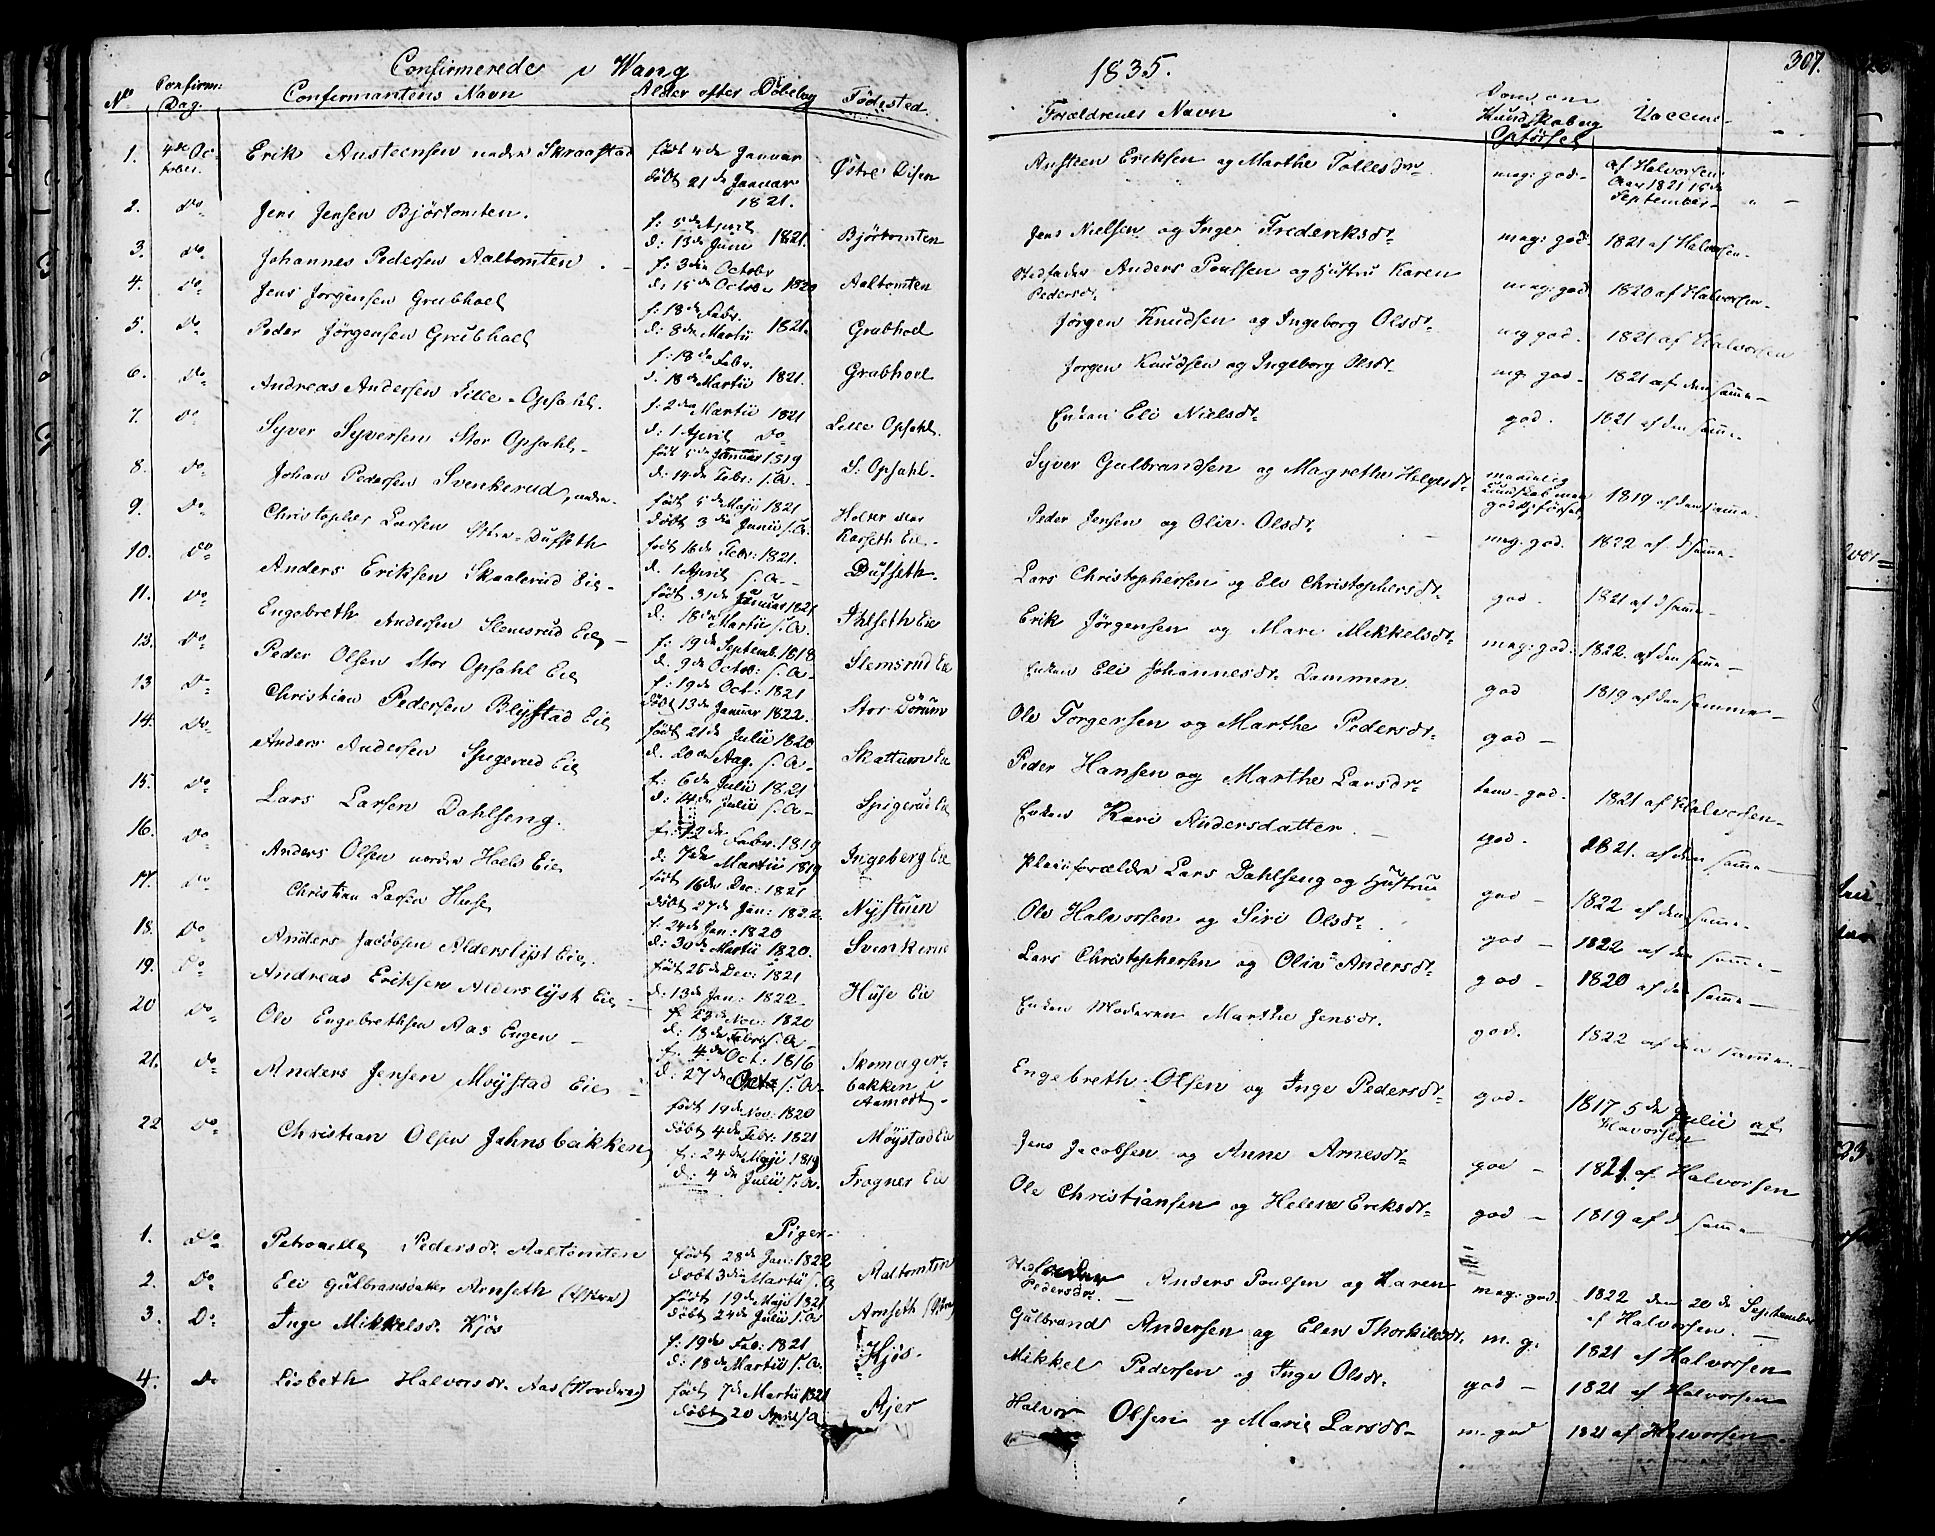 Confirmerede i Wang 1835. 307.
No Confirm: Dag. Confirmantens Navn Alder efter Døbebog Fødested. Forældrenes Navn Dom om Kundskab og Opførsel Vaccine
1. 4de October Erik Austeensen nedre Skraastad født 4de Januar døbt 21de Januar 1821. Østre Disen Austeen Eriksen og Marthe Tollesdr meg: god. af Halvorsen Aar 1821 15de September
2. Do Jens Jensen Bjørtomten. f: 5de April d: 13de Juni 1821. Bjørtomten Jens Nielsen og Inger Frederiksdr meg: god. 1821 af Halvorsen
3. Do Johannes Pedersen Aaltomten f: 3die Octobr d: 15de October 1820 Aaltomten Stedfader Anders Poulsen og Hustru Karen Pedersdr meg: god 1820 af Halvorsen
4. Do Jens Jørgensen Grubhoel f: 18de Febr. d: 8de Martii 1821. Grubhoel Jørgen Knudsen og Ingeborg Olsdr meg god. 1821 af Halvorsen
5. Do Peder Jørgensen Grubhoel f: 18de Febr. d. 18de Martii 1821. Grubhoel Jørgen Knudsen og Ingeborg Olsdr meg. god. 1821 af den samme
6. Do Andreas Andersen Lille-Opsahl. f: 2den Martii 1821 d: 1 April Do Lille Opsahl. Enken Eli Nielsdr god. 1821 af den samme
7. Do Syver Syversen Stor Opsahl født 5de Januar 1819 d: 14de Febr: s: A. S: Opsahl. Syver Gulbrandsen og Magrethe Helgesdr maadelig Kundskab men god Opførsel 1819 af den samme
8. Do Johan Pedersen Svenkerud, nedre født 5de Maji 1821 døbt 3die Junii s: A. Holset Korseth Eie Peder Jensen og Olia Olsdr meg: god. 1822 af d samme
9. Do Christopher Larsen Østre-Dufseth født 16de Febr: 1821. d. 1 April s: A. Dufseth. Lars Christophersen og Eli Christophersdr god. 1821 af d samme
10. Do Anders Eriksen Skaalerud Eie født 31de Januar 1821 d: 18de Martii s: A. Ihlseth Eie Erik Jørgensen og Mari Mikkelsdr meg: god. 1822. af den samme
11. Do Engebreth Andersen Slemsrud Eie f: 19de Septemb. 1818 d. 9de Octob: s: A. Slemsrud Eie Enken Eli Johannesdr Dammen. god 1819 af den samme
12. Do Peder Olsen Stor Opsahl Eie f: 19de Oct: 1821 døbt 13de Januar 1822. Stor Dørum Ole Torgersen og Marthe Pedersdr god
13 Do Christian Pedersen Blystad Eie født 21de Julii 1820 d. 20de Aug. s: A. Skattum Eie Peder Hansen og Marthe Larsdr tem. god. 1821 af Halvorsen
14. Do Anders Andersen Spigerud Eie f: 6de Julii 1821 d: 14de Julii s: A. Spigerud Eie Enken Kari Andersdatter. god. 1821. af den samme
15. Do Lars Larsen Dahlseng. f: 12de Febr: 1819 d: 7de Martii 1819 Ingeberg Eie Pleieforældre Lars Dahlseng og Hustru god 1822 af den samme
16. Do Anders Olsen nordre Hoels Eie født 16de Dec: 1821 døbt 27de Jan: 1822 Nystuen Ole Halvorsen og Siri Olsdr god 1822 af den samme
17. Do Christian Larsen Huse f: 24de Jan: 1820 d: 30de Martii 1820. Svenkerud Lars Christophersen og Olia Andersdr god 1820 af den samme
18. Do Anders Jacobsen Alderslyst Eie født 25de Dec: 1821 d: 13de Jan: 1822 Huse Eie Enken Moderen Marthe Jensdr. god. 1822 af den samme
19. Do Andreas Eriksen Alderslyst Eie f: 29de Nov: 1820 d: 18de Febr: s: A
20 Do Ole Engebrethsen Aas Engen f: 4de Oct: 1816 d: 27de Octo s: A. Skomagerbakken i Aamodt Engebreth Olsen og Inge Pedersdr god. 1817 5de Julii af Halvorsen
21. Do Anders Jensen Møystad Eie født 19de Nov: 1820 døbt 4de Febr: 1821 Møystad Eie Jens Jacobsen og Anne Arnesdr god 1821. af Halvorsen
22 Do Christian Olsen Jahnsbakken f: 24de Maji 1819 d: 4de Julii s: A. Frogner Eie Ole Christiansen og Helene Eriksdr god 1819 af d samme
Piger
1. Do Petronelle Pedersdr Aaltomten født 28de Jan: 1822 døbt 3die Martii s: A Aaltomten Stedfader Anders Poulsen og Karen Pedersdr. meg: god. 1822 den 20de September af Halvorsen.
2. Do Eli Gulbransdatter Arnseth (Østre) født 19de Maji 1821 døbt 24de Julii s: A Arnseth (Østre) Gulbrand Andersen og Elen Thorkildsdr. m. g. 1821 af Halvorsen
3. Do Inge Mikkelsdr Kjøs f: 19de Feb: 1821 d: 18de Martii s: A. Kjøs. Mikkel Pedersen og Inge Olsdr god 1821 af Halvorsen
4. Do Lisbeth Halvorsdr. Aas (Nordre) født 7de Martii 1821 døbt 20 April s: A Ajer Halvor Olsen og Marie Larsdr m. god 1821 af Halvorsen